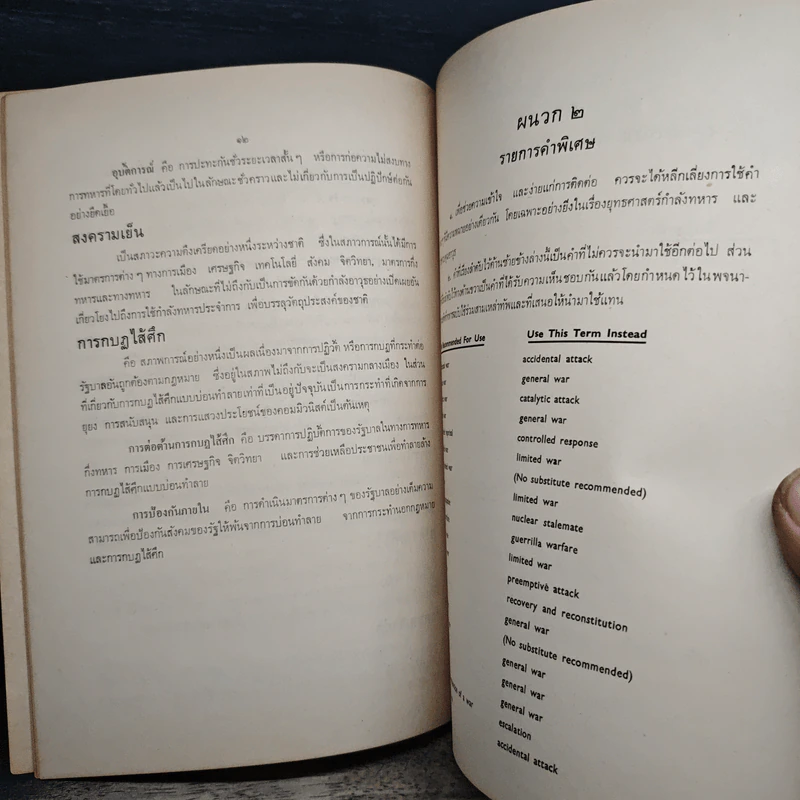 ๑๒
อุบัติการณ์ คือ การปะทะกันชั่วระยะเวลาสั้น ๆ หรือการก่อความไม่สงบทาง
การทหารที่โดยทั่วไปแล้วเป็นไปในลักษณะชั่วคราวและไม่เกี่ยวกับการเป็นปฏิปักษ์ต่อกัน
อย่างยืดเยื้อ
สงครามเย็น
เป็นสภาวะความตึงเครียดอย่างหนึ่งระหว่างชาติ ซึ่งในสภาวการณ์นั้นได้มีการ
ใช้มาตรการต่าง ๆ ทางการเมือง เศรษฐกิจ เทคโนโลยี่ สังคม จิตวิทยา, มาตรการกึ่ง
ทหารและทางทหาร ในลักษณะที่ไม่ถึงกับเป็นการขัดกันด้วยกำลังอาวุธอย่างเปิดเผยอัน
เกี่ยวโยงไปถึงการใช้กำลังทหารประจำการ เพื่อบรรลุวัตถุประสงค์ของชาติ
การกบฏไส้ศึก
คือ สภาพการณ์อย่างหนึ่งเป็นผลเนื่องมาจากการปฏิวัติ หรือการกบฏที่กระทำต่อ
รัฐบาลอันถูกต้องตามกฎหมาย ซึ่งอยู่ในสภาพไม่ถึงกับจะเป็นสงครามกลางเมือง ในส่วน
ที่เกี่ยวกับการกบฏไส้ศึกแบบบ่อนทำลายเท่าที่เป็นอยู่ปัจจุบันเป็นการกระทำที่เกิดจากการ
ยุยง การสนับสนุน และการแสวงประโยชน์ของคอมมิวนิสต์เป็นต้นเหตุ
การต่อต้านการกบฏไส้ศึก คือ บรรดาการปฏิบัติการของรัฐบาลในทางการทหาร
กึ่งทหาร การเมือง การเศรษฐกิจ จิตวิทยา และการช่วยเหลือประชาชนเพื่อทำลายล้าง
การกบฏไส้ศึกแบบบ่อนทำลาย
การป้องกันภายใน คือ การดำเนินมาตรการต่าง ๆ ของรัฐบาลอย่างเต็มความ
สามารถเพื่อป้องกันสังคมของรัฐให้พ้นจากการบ่อนทำลาย จากการกระทำนอกกฎหมาย
และการกบฏไส้ศึก
ผนวก ๒
รายการคำพิเศษ
๑. เพื่อช่วยความเข้าใจ และง่ายแก่การติดต่อ ควรจะได้หลีกเลี่ยงการใช้คำ
ความหมายอย่างเดียวกัน โดยเฉพาะอย่างยิ่งในเรื่องยุทธศาสตร์กำลังทหาร และ
๒. คำที่เรียงลำดับไว้ด้านซ้ายข้างล่างนี้เป็นคำที่ไม่ควรจะนำมาใช้อีกต่อไป ส่วน
ด้านขวาเป็นคำที่ได้รับความเห็นชอบกันแล้วโดยกำหนดไว้ในพจนา-
ร่วมสามเหล่าทัพและที่เสนอให้นำมาใช้แทน
Recommended For Use
Use This Term Instead
accidental attack
general war
catalytic attack
general war
controlled response
limited war
(No substitute recommended)
limited war
nuclear stalemate
guerrilla warfare
limited war
preemptive attack
recovery and reconstitution
general war
(No substitute recommended)
general war
general war
general war
of a war
escalation
accidental attack